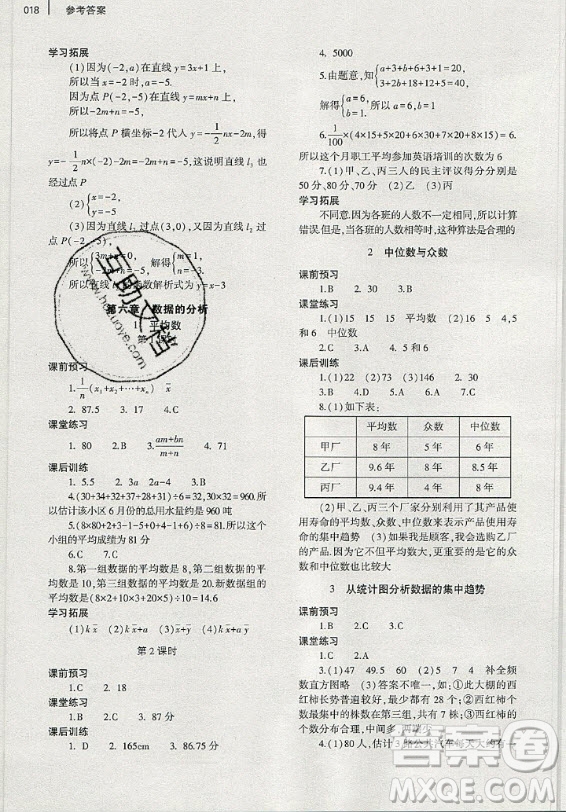 018 参考答案
学习拓展
(1)因为(-2,a)在直线 y=3x+1 上,
所以当 x=-2 时,a=-5
因为点 P(-2,-5)在直线 y=mx+n 上,
所以-2m+n=-5,
所以将点 P 横坐标-2 代入 y=-1/2nx-2m,得
y=-1/2n×(-2)-2m=-2m+n=-5,这说明直线 l₃ 也
经过点 P
(2){x=-2, y=-5
(3)因为直线 l₂ 经过点(3,0),又因为直线经过
点 P(-2,-5),
所以{3m+n=0, -2m+n=-5, 解得{m=1, n=-3
函数解析式为 y=x-3
第六章 数据的分析
1 平均数
课前预习
1.1/n(x₁+x₂+⋯+xₙ) x̄
2. 87.5 3. D
课堂练习
1. 80 2. B 3. (am+bn)/(m+n) 4. 71
课后训练
1. 5.5 2. 3a 2a 3. D
4.(30+34+32+37+28+31)÷6×30=960 吨
估计该小区 6 月份的总用水量约是 960 吨
5.(8×80+2+3-1-5+0+1+5+3)÷8=81 分,这个
小组的平均成绩为 81 分
6. C 7. B 8.第一组数据的平均数是 8,第二组数据的平
均数是 10,第三组数据的平均数是 12,新数据的平均
数是(8×2+10×3+12×10)÷10=14.6
学习拓展
(1)k x̄ (2)k x̄+a (3)x̄+ȳ (4)k x̄+a
第 2 课时
课前预习
1. C 2. 18
课堂练习
1. B 2. C 3. 87 分
课后训练
1. D 2. 165cm 3. 86.75 分
4. 5000
5.由题意,知{a+3+b+6+2=18, 3+2b+18+12+5a=60,
解得{a=6, b=1.
6.1/100×(4×15+5×20+6×27+7×30+8×8)=
所以这个月职工平均参加英语培训的次数为 6
7.(1)甲、乙、丙三人的民主评议得分分别是
50 分、80 分、70 分 (2)乙 (3)丙
学习拓展
不同意.因为各班的人数不一定相同,所以计算
错误.但当各班的人数相等时,这种算法是合理的
2 中位数与众数
课前预习
1. B 2. 30 3. B
课堂练习
1.(1)15 15 15 平均数 (2)16 5 4,5
和 6 中位数
课后训练
1.(1)22 (2)73 (3)64 2. 30
3. B 4. C 5. B 6. C 7. A
8.(1)如下表:
平均数 众数 中位数
甲厂 8 年 5 年 6 年
乙厂 9.6 年 8 年 8.5 年
丙厂 9.4 年 4 年 8 年
(2)甲、乙、丙三个厂家分别利用了其产品使
用寿命的平均数、众数、中位数来表示产品使用寿
命的集中趋势 (3)如果我是顾客,我会选购乙厂
的产品.因为乙厂不仅平均数最大,更重要的是它的众
数和中位数也比较大
3 从统计图分析数据的集中趋势
课前预习
1. B 2. C
课堂练习
1. C 2. A
3.(1)47 49.5 60 (2)4 12 补全频
数直方图略 (3)答案不唯一,如:①此大棚的西
红柿长势普遍较好,最少都有 28 个;②西红柿个
数最集中的株数在第三组,共有 7 株;③西红柿的
个数分布合理,中间多,两端少
4.(1)80 人,估计3路公共汽车每天大约有一
互助文档
www.hezuowe.com
答案圈
MXQE.COM